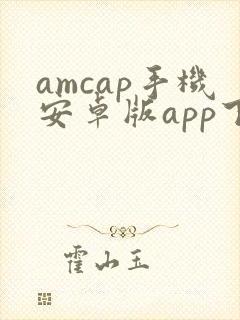 amcap手機
安卓版app下
霍山玉